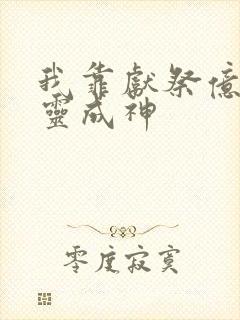 我靠獻祭億
靈成神
零度寂寞